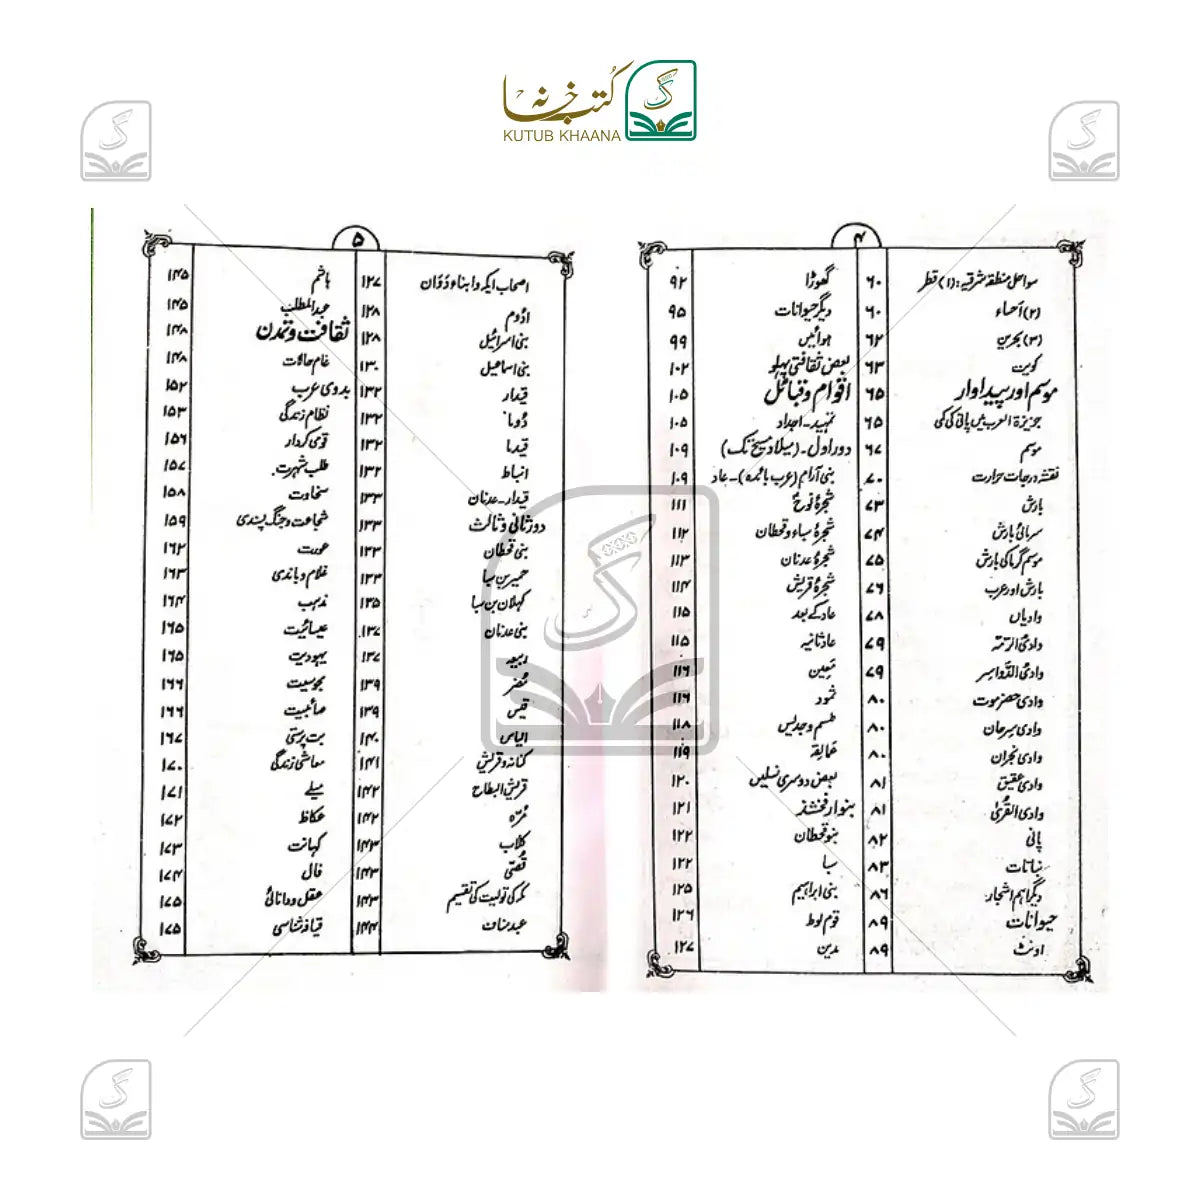 کتب خانہ
KUTUB KHAANA
۴
سواحل منطقہ شرقیہ: (۱) قطر ۶۰
(۲) احساء ۶۰
(۳) بحرین ۶۲
کویت ۶۳
موسم اور پیداوار ۶۵
جزیرۃ العرب میں پانی کی کمی ۶۵
موسم ۶۷
نقشہ درجات حرارت ۷۰
بارش ۷۳
سرمائی بارش ۷۴
موسم گرما کی بارش ۷۵
بارش اور عرب ۷۶
وادیاں ۷۸
وادی الرمّہ ۷۹
وادی الدّواسر ۷۹
وادی حضرموت ۸۰
وادی سرحان ۸۰
وادی نجران ۸۰
وادی عقیق ۸۱
وادی القریٰ ۸۱
پانی ۸۲
نباتات ۸۳
دیگر اہم اشجار ۸۶
حیوانات ۸۹
اونٹ ۸۹
گھوڑا ۹۲
دیگر حیوانات ۹۵
ہوائیں ۹۹
بعض ثقافتی پہلو ۱۰۲
اقوام و قبائل ۱۰۵
تمہید - اجداد ۱۰۵
دور اول - (میلاد مسیح تک) ۱۰۹
بنی آرام (عرب بائدہ) - عاد ۱۰۹
شجرۂ نوح ۱۱۱
شجرۂ سباء و قحطان ۱۱۲
شجرۂ عدنان ۱۱۳
شجرۂ قریش ۱۱۴
عاد کے بعد ۱۱۵
عاد ثانیہ ۱۱۵
مَعِین ۱۱۶
ثمود ۱۱۶
طسم و جدیس ۱۱۸
عمالقہ ۱۱۹
بعض دوسری نسلیں ۱۲۰
بنو ارفخشذ ۱۲۱
بنو قحطان ۱۲۲
سبا ۱۲۲
بنی ابراہیم ۱۲۵
قوم لوط ۱۲۶
مدین ۱۲۷
۵
اصحاب ایکہ و ابناء دَدَان ۱۲۷
ادُوم ۱۲۸
بنی اسرائیل ۱۲۸
بنی اسماعیل ۱۳۰
قیدار ۱۳۲
دُوما ۱۳۲
قیدما ۱۳۲
انباط ۱۳۲
قیدار - عدنان ۱۳۳
دور ثانی و ثالث ۱۳۳
بنی قحطان ۱۳۳
حمیر بن سبا ۱۳۳
کہلان بن سبا ۱۳۵
بنی عدنان ۱۳۷
ربیعہ ۱۳۷
مُضر ۱۳۹
قیس ۱۳۹
الیاس ۱۴۰
کنانہ و قریش ۱۴۱
قریش البطاح ۱۴۲
مُرّہ ۱۴۲
کلاب ۱۴۳
قُصَیّ ۱۴۳
مکہ کی تولیت کی تقسیم ۱۴۳
عبد مناف ۱۴۴
ہاشم ۱۴۵
عبد المطلب ۱۴۵
ثقافت و تمدن ۱۴۸
عام حالات ۱۴۸
بدوی عرب ۱۵۲
نظام زندگی ۱۵۳
قومی کردار ۱۵۶
طلب شہرت ۱۵۷
سخاوت ۱۵۸
شجاعت و جنگ پسندی ۱۵۹
عورت ۱۶۲
غلام و باندی ۱۶۳
مذہب ۱۶۴
عیسائیت ۱۶۵
یہودیت ۱۶۵
مجوسیت ۱۶۶
صائبیت ۱۶۶
بت پرستی ۱۶۷
معاشی زندگی ۱۷۰
میلے ۱۷۱
عکاظ ۱۷۲
کہانت ۱۷۳
فال ۱۷۴
عقل و دانائی ۱۷۵
قیافہ شناسی ۱۷۵